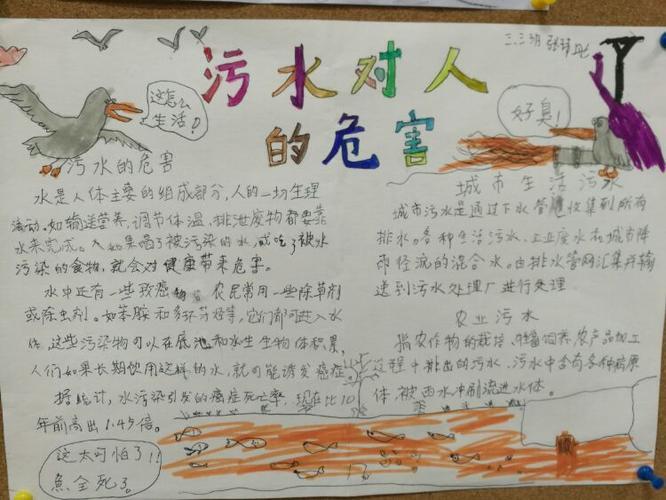 污水对人
的危害
三.三班 张
这怎么
生活？
好臭！
污水的危害
水是人体主要的组成部分，人的一切生理
活动，如输送营养，调节体温，排泄废物都要靠
水来完成。人如果喝了被污染的水，或吃了被水
污染的食物，就会对健康带来危害。
水中还有一些致癌物 农民常用一些除草剂
或除虫剂。如苯胺和多环芳烃等，它们都可进入水
体，这些污染物可以在底泥和水生生物体积累，
人们如果长期饮用这样的水，就可能诱发癌症
据统计，水污染引发的癌症死亡率，现在比10
年前高出1.45倍。
这太可怕了！！
魚全死了。
城市生活污水
城市污水是通过下水管道收集到所有
排水。各种生活污水、工业废水和城市降
雨径流的混合水。由排水管网汇集并输
送到污水处理厂进行处理
农业污水
指农作物的栽培，牲畜饲养，农产品加工
过程中排出的污水，污水中含有各种病原
体，被雨水冲刷流进水体。